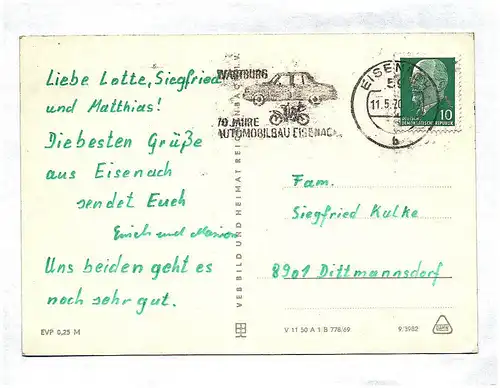 Liebe Lotte, Siegfried
und Matthias!
Die besten Grüße
aus Eisenach
sendet Euch
Erich und Marion
Uns beiden geht es
noch sehr gut.
EVP 0,25 M
VEB BILD UND HEIMAT REICHENBACH I. V.
WARTBURG
70 JAHRE
AUTOMOBILBAU EISENACH
EISENACH
59
11.5.70
b
10
DEUTSCHE
DEMOKRATISCHE REPUBLIK
Fam.
Siegfried Kulke
8901 Dittmannsdorf
V 11 50 A 1 B 778/69
9/3982